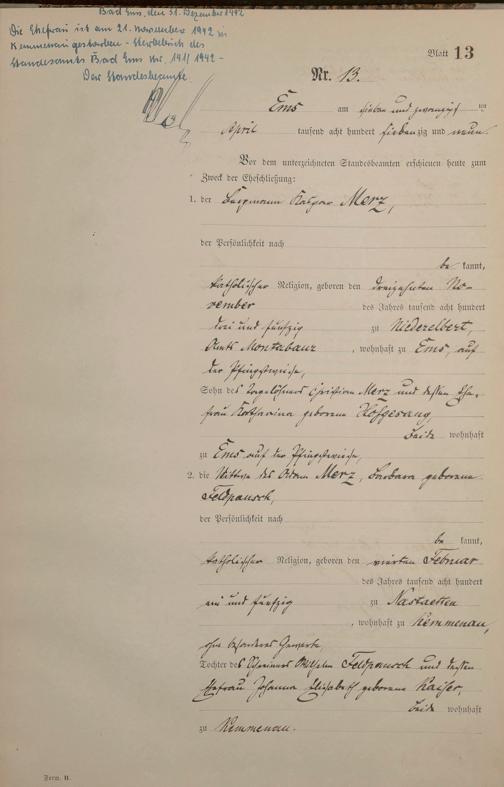 Bad Ems, den 31. Dezember 1942
Die Ehefrau ist am 21. November 1942 in
Kemmenau gestorben - Sterbebuch des
Standesamts Bad Ems Nr. 141/1942 -
Der Standesbeamte
Blatt 13
Nr. 13.
Ems am sieben und zwanzigsten
April tausend acht hundert siebenzig und neun.
Vor dem unterzeichneten Standesbeamten erschienen heute zum
Zweck der Eheschließung:
1. der Bergmann Kaspar Merz,
der Persönlichkeit nach
be kannt,
katholischer Religion, geboren den dreizehnten No-
vember des Jahres tausend acht hundert
drei und fünfzig zu Niederelbert,
Amts Montabaur, wohnhaft zu Ems, auf
der Pfingstweide,
Sohn des Tagelöhners Christian Merz und dessen Ehe-
frau Katharina geborene Hofgesang,
beide wohnhaft
zu Ems auf der Pfingstweide,
2. die Wittwe des Merz, Barbara geborene
Feldpausch,
der Persönlichkeit nach
be kannt,
katholischer Religion, geboren den vierten Februar
des Jahres tausend acht hundert
ein und fünfzig zu Nastaetten
, wohnhaft zu Kemmenau,
ohne besonderes Gewerbe,
Tochter des Schreiners Wilhelm Feldpausch und dessen
Ehefrau Johanna Elisabeth geborene Kaiser,
beide wohnhaft
zu Kemmenau.
Form. II.